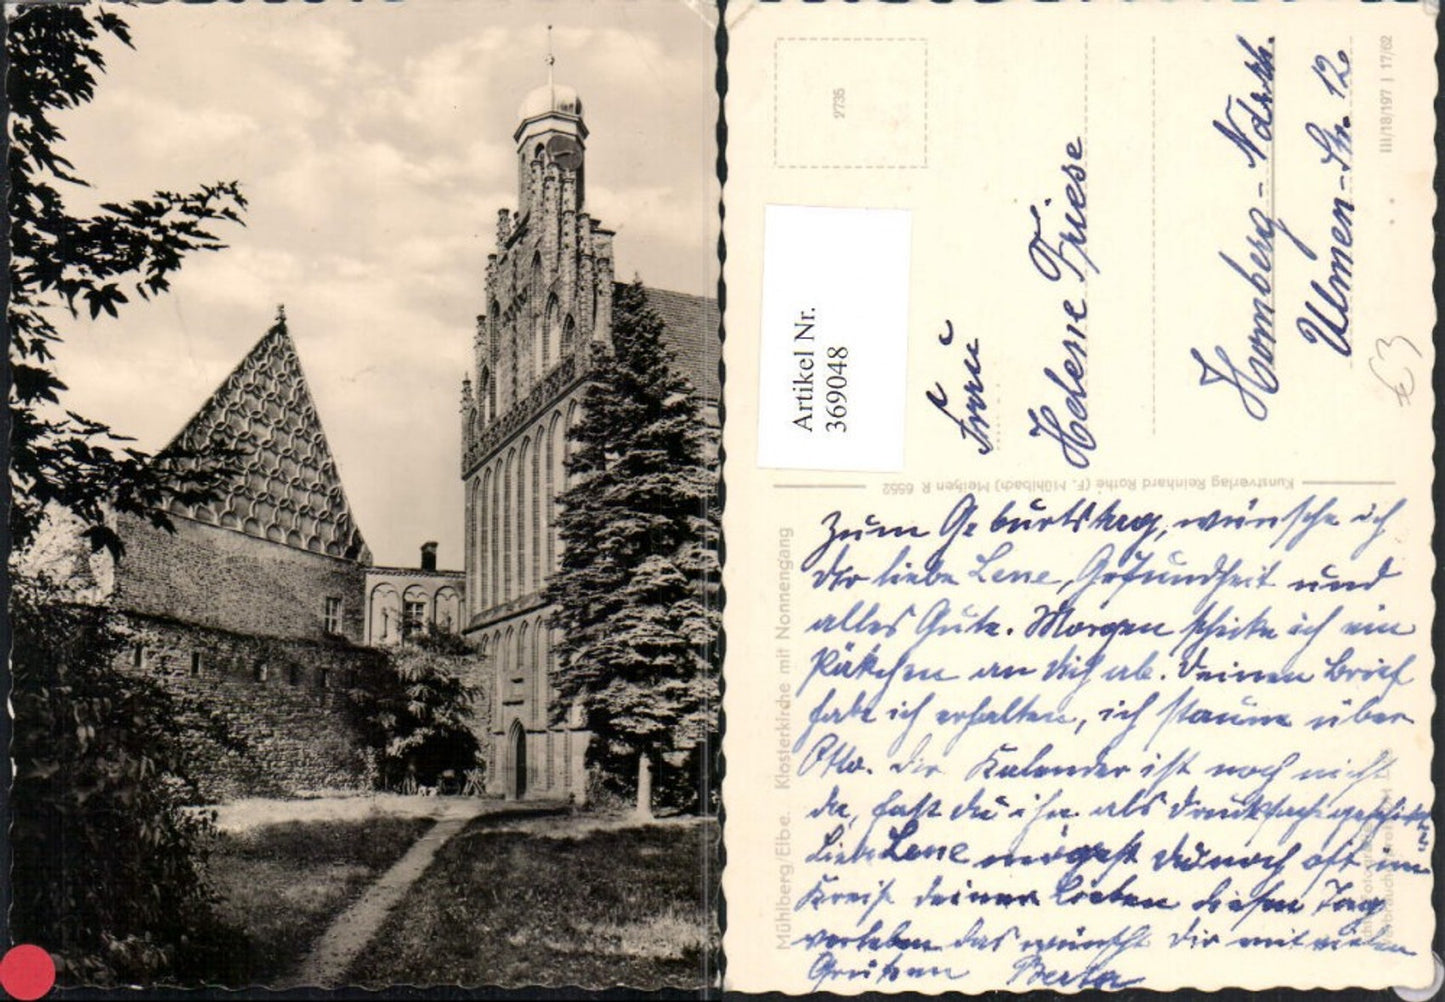 2735
Artikel Nr.
369048
Frau
Helene Friese
Homberg-Ndrrh.
Ulmen-Str. 12
€3
III/18/197 J 17/62
Kunstverlag Reinhard Rothe (F. Mühlbach) Meißen R 6552
Mühlberg/Elbe. Klosterkirche mit Nonnengang
Zum Geburtstag, wünsche ich
dir liebe Lene, Gesundheit und
alles Gute. Morgen schicke ich ein
Päckchen an dich ab. Deinen Brief
habe ich erhalten, ich staune über
Otto. Der Kalender ist noch nicht
da, hast du ihn als Drucksache geschickt
Liebe Lene mögest du noch oft im
Kreise deiner Lieben diesen Tag
verleben das wünscht dir mit vielen
Grüßen Berta